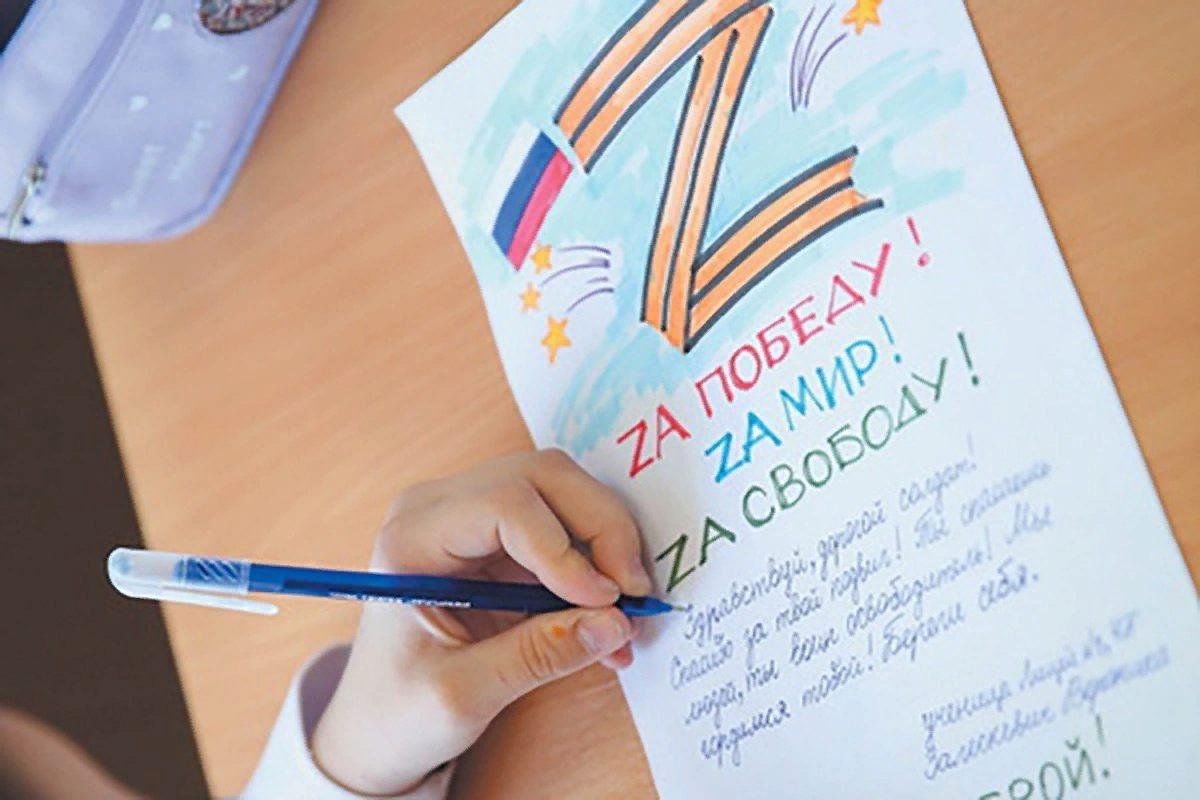 ZA ПОБЕДУ!
ZA МИР!
ZA СВОБОДУ!
Здравствуй, дорогой солдат!
Спасибо за твой подвиг! Ты спасаешь
людей, ты воин освободитель! Мы
гордимся тобой! Береги себя.
ученица Лицей
Вероника
РОЙ!